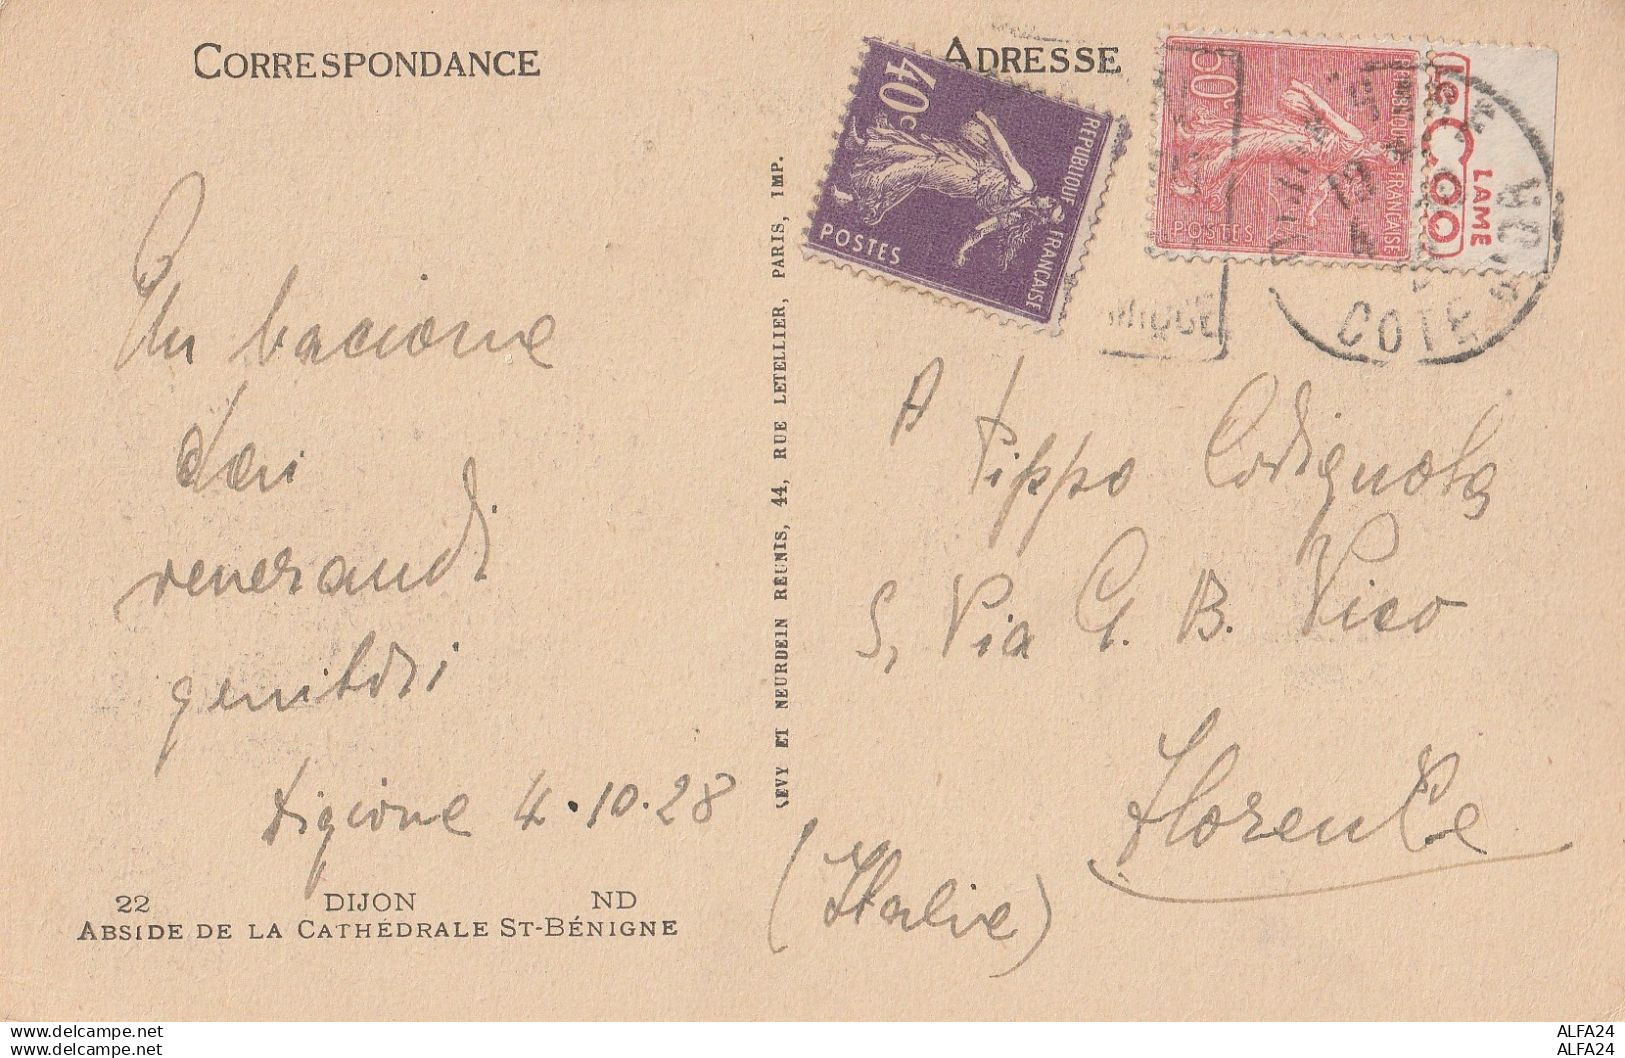 CORRESPONDANCE
ADRESSE
40c
REPUBLIQUE FRANÇAISE
POSTES
50c
REPUBLIQUE FRANÇAISE
POSTES
Le Coq
LAME
COTE
Un bacione
dai
venerandi
genitori
Digione 4.10.28
A Pippo Codignola
5, Via G. B. Vico
Florence
(Italie)
LEVY ET NEURDEIN REUNIS, 44, RUE LETELLIER, PARIS, IMP.
22 DIJON ND
ABSIDE DE LA CATHÉDRALE ST-BÉNIGNE
www.delcampe.net ALFA24
www.delcampe.net ALFA24